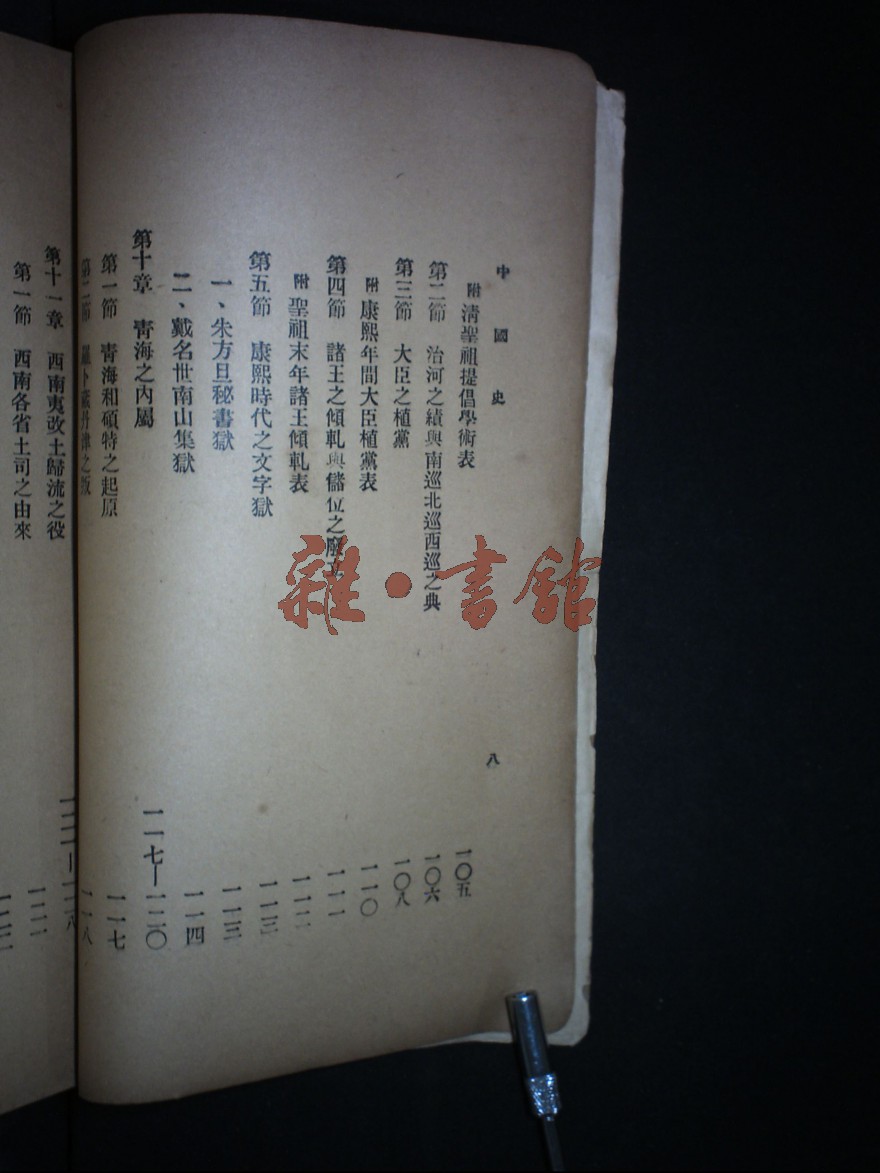 中國史
八
附 淸聖祖提倡學術表 一〇五
第二節 治河之績與南巡北巡西巡之典 一〇六
第三節 大臣之植黨 一〇八
附 康熙年間大臣植黨表 一一〇
第四節 諸王之傾軋與儲位之廢立 一一一
附 聖祖末年諸王傾軋表 一一二
第五節 康熙時代之文字獄 一一三
一、朱方旦秘書獄 一一三
二、戴名世南山集獄 一一四
第十章 靑海之內屬 一一七—一二〇
第一節 靑海和碩特之起原 一一七
第二節 羅卜藏丹津之叛 一一八
第十一章 西南夷改土歸流之役
第一節 西南各省土司之由來
雜·書館